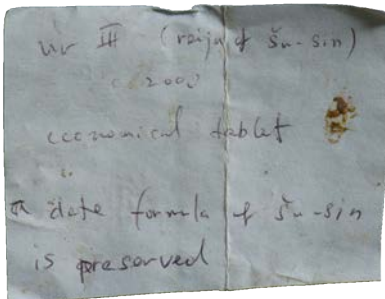 Ur III (reign of Šu-sin)
c 2000
economical tablet
a date formula of Šu-sin
is preserved